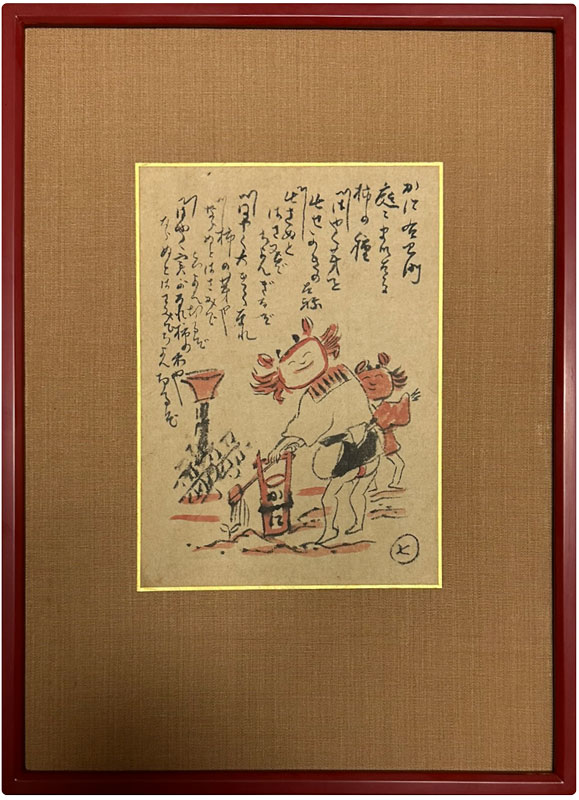 かに右ヱ門
庭にまいたよ
柿の種
はやく芽を
出せ かきの たね
出さぬと
はさみで
ちょんぎるぞ
はやく大きくなれ
柿の芽や
ならぬとはさみで
ちょん切るぞ
はやく実がなれ柿の木や
ならぬとはさみでちょんぎるぞ
かに
七